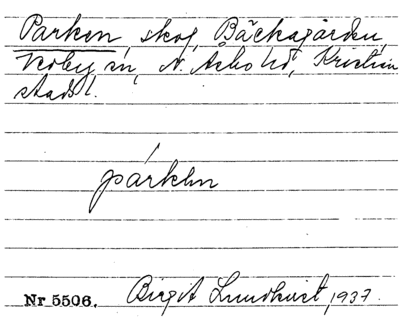 Parken, skog, Bäckagården,
Verby sn, N. Åsbo hd, Kristian
stads l.
párkən
Nr 5506. Birgit Lundkvist, 1937.